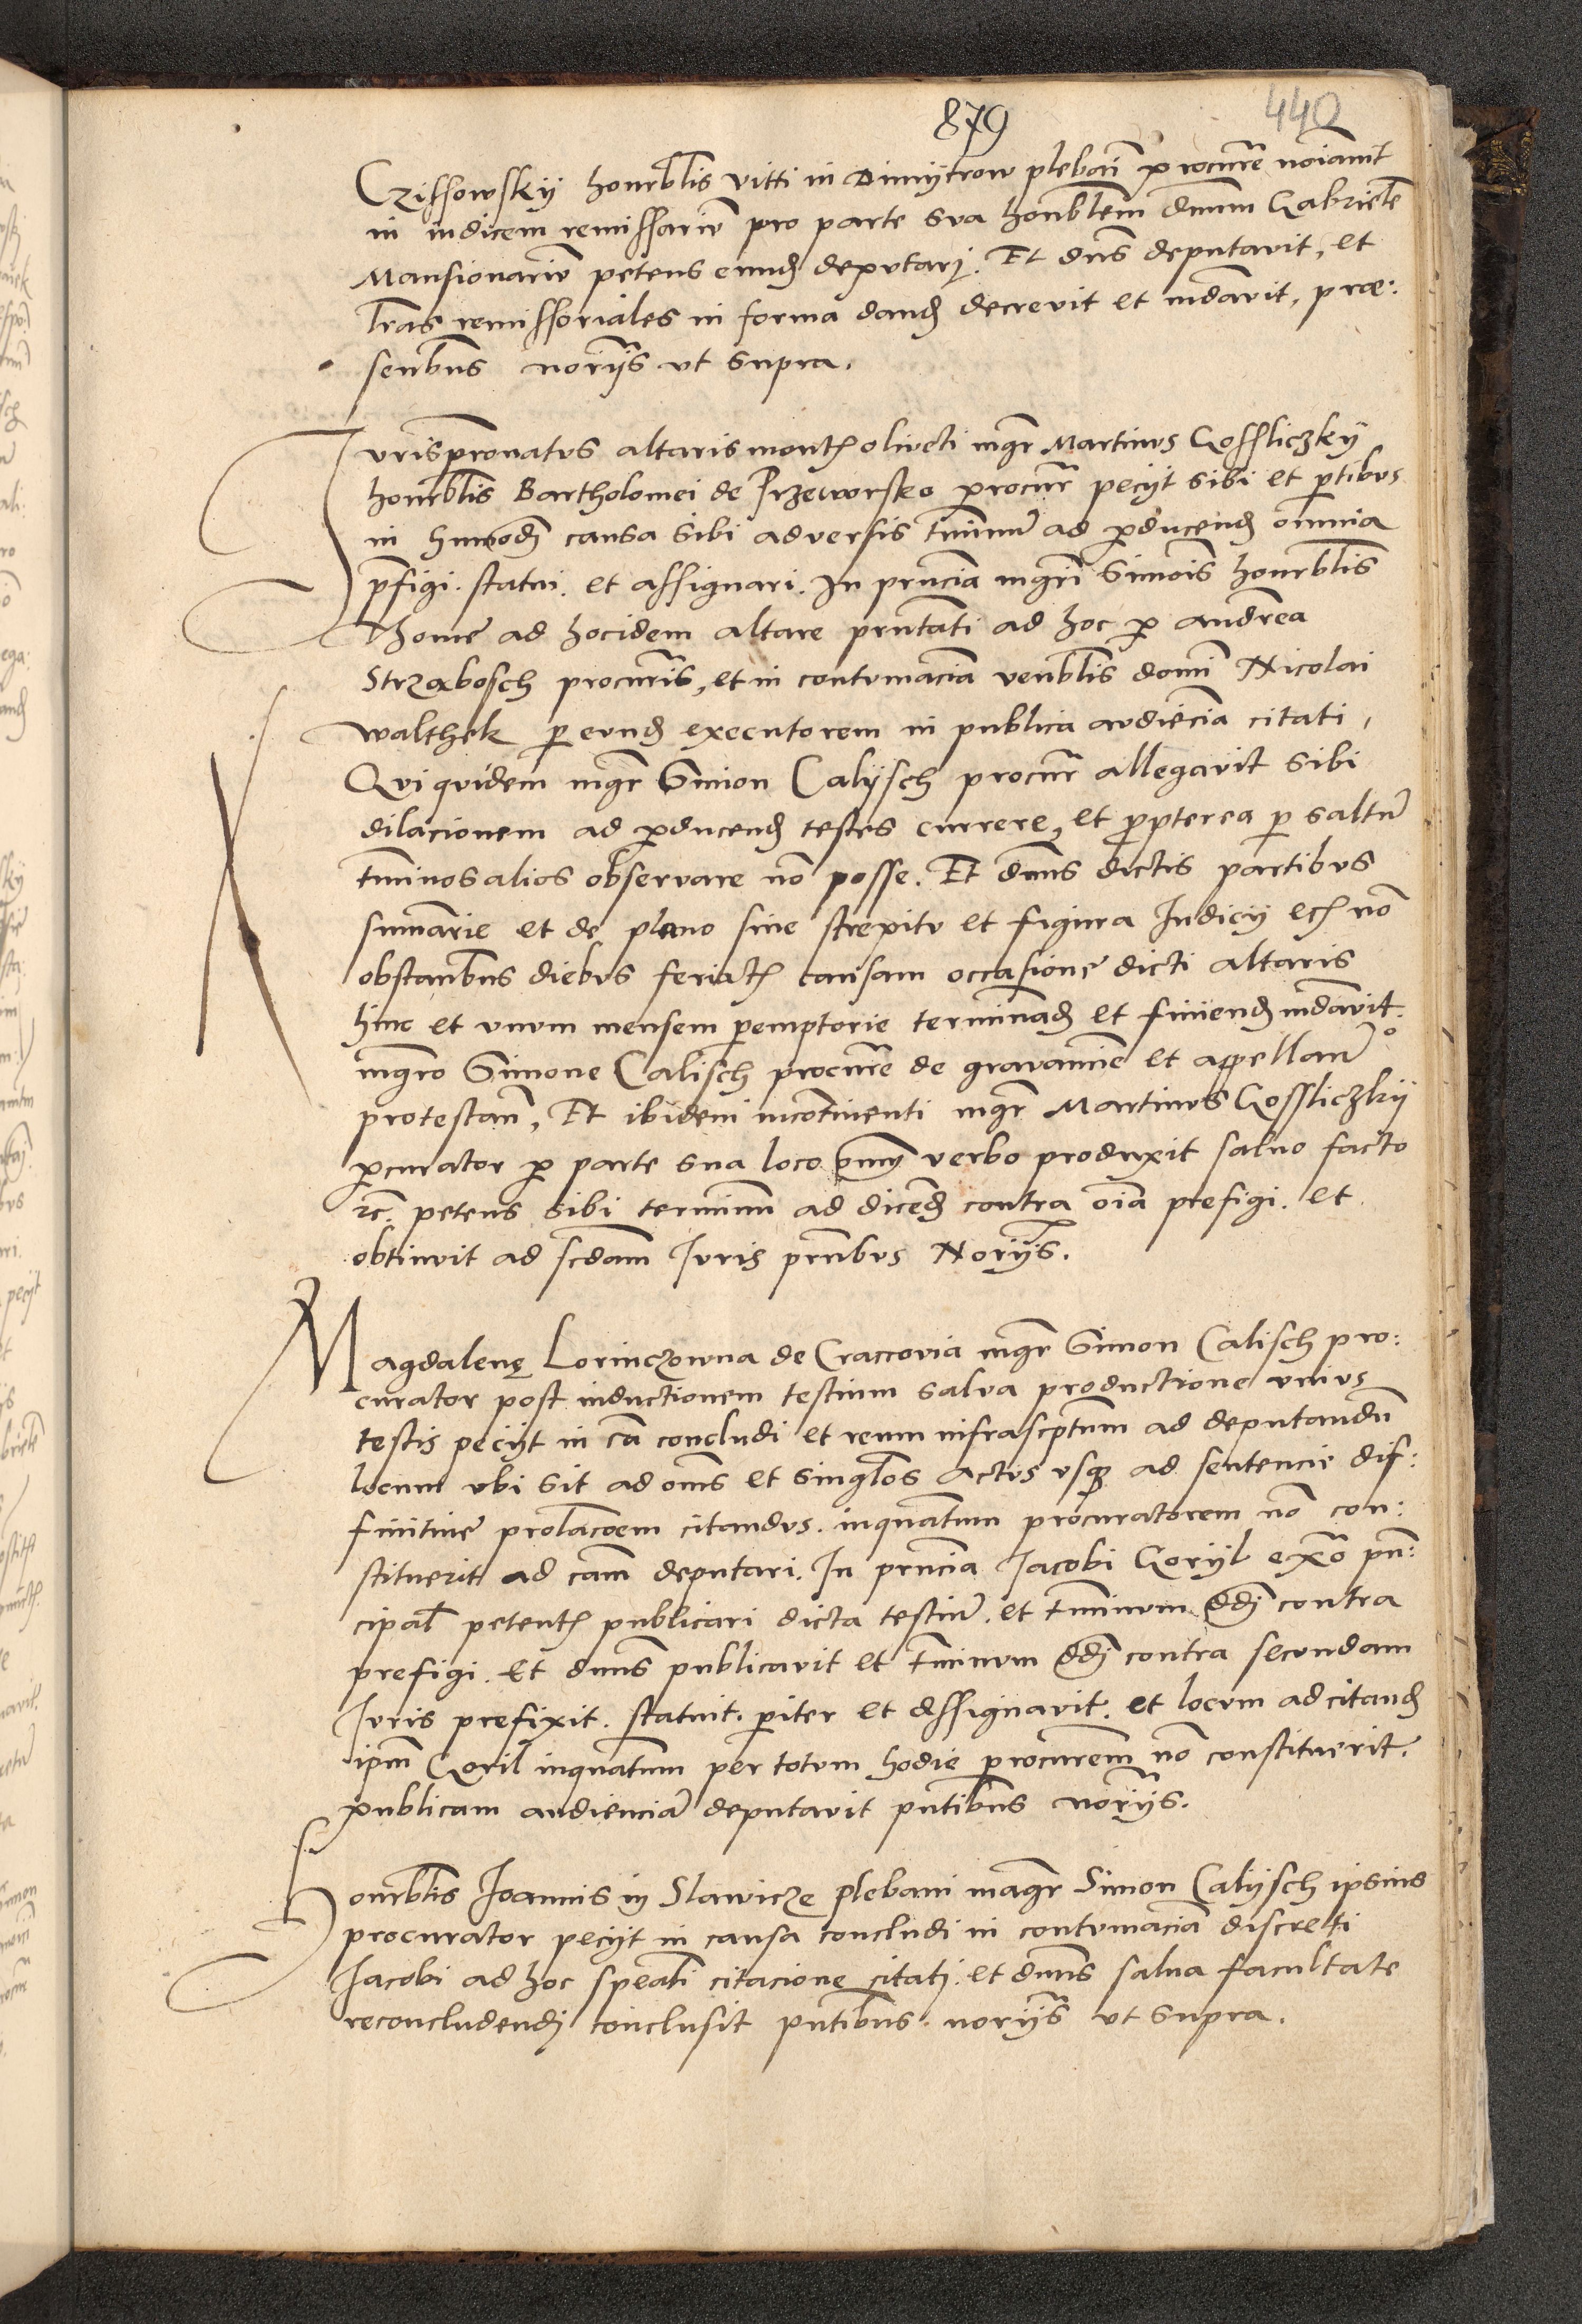 879 440
Czissowskÿ honrblis vitti in Dimÿtrow plebani procure noiauit
in iudicem remissariu pro parte sva honblem dnum Gabriele
Mansionariu petens eundem deputarj. Et dns deputavit, et
lras remissoriales in forma dand decrevit et mdavit, præ:
sentbus noriis vt supra.
Jurispronatvs altaris montis oliueti mgr Martinvs Gossliczkÿ
honrblis Bartholomei de Przeworsko procur pecÿt sibi et ptibvs
in hmodi causa sibi adversis tminu ad pducend omnia
pfigi. statui. et assignari. In pnncia mgri Simois honrblis
Thome ad hocidem altare pnntati ad hoc p andrea
Strzabosch procuris, et in contvmacia venblis domi Nicolai
walthek p eund executorem in publica avdiecia citati,
Qvi qvidem mgr Simon Calÿsch procur allegavit sibi
dilacionem ad pducend testes currere, et ppterea p saltu
tminos alios observare no posse. Et dnns dictis partibvs
sumarie et de plano sine strepitv et figura Iudicÿ etc no
obstantbus diebvs feriatis causam occasione dicti altaris
hinc et vnvm mensem pemptorie terminad et finiend mdavit.
mgro Simone Calisch procure de gravamine et appelland
protestan, Et ibidem incontinenti mgr Martinvs Gossliczkÿ
pcurator p parte sua loco oium verbo produxit salvo facto
rc. petens sibi terminum ad dicend contra oia prefigi. et
obtinvit ad scdam Jvris pnntbvs Noriis.
Magdalenę Lorinczowna de Craccovia mgr Simon Calisch pro:
curator post inductionem testium salva productione vnivs
testis pecÿt in ca concludi et reum infrascptum ad deputandu
locum vbi sit ad oms et singlos actvs vsq ad sentencie dif:
finitive prolacoem citandvs. inquantum procuratorem no con:
stituerit ad cam deputari. In pnncia Jacobi Gorÿl exo prin:
cipal petentis publicari dicta testiu. et tminvm ddi contra
prefigi. et dnns publicavit et tminvm ddi contra secvndam
Jvris prefixit. statuit. piter et assignavit. et locvm ad citand
ipm Goril inquatum per totvm hodie procurem no constituerit.
publicam audiencia deputavit pntibus noriis.
Honrblis Joannis in Slawicze plebani magr Simon Calÿsch ipsius
procurator pecÿt in causa concludi in contvmacia discreti
Jacobi ad hoc speali citacione citatj. et dnns salua facultate
reconcludendi conclusit pntibus. noriis vt supra.